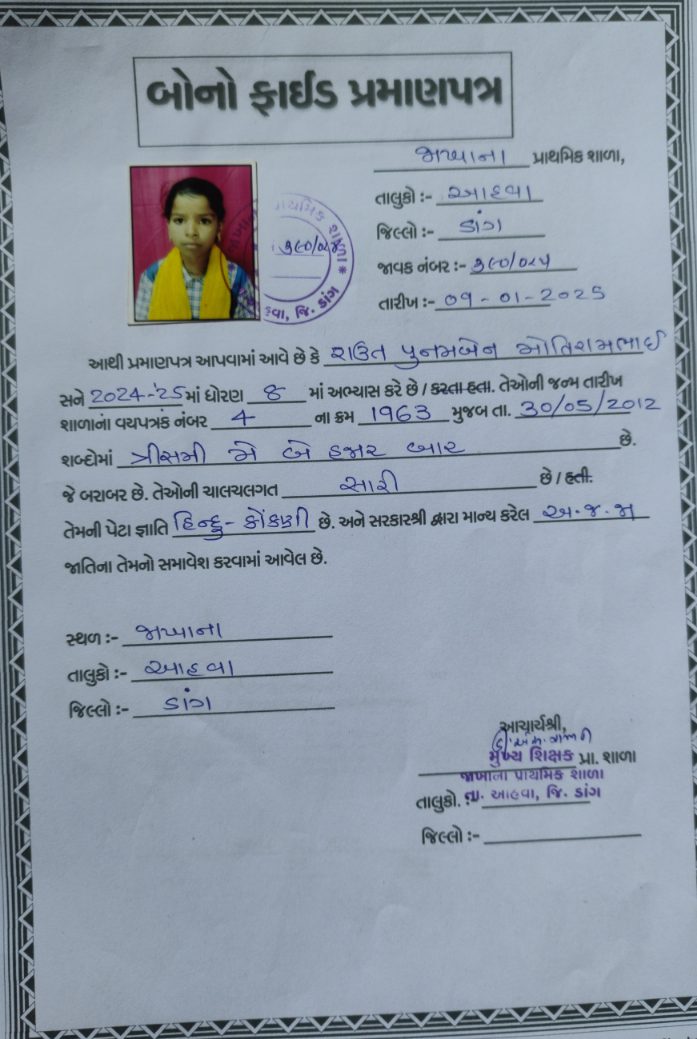 બોનો ફાઈડ પ્રમાણપત્ર
જાખાના પ્રાથમિક શાળા,
તાલુકો :- આહવા
જિલ્લો :- ડાંગ
જાવક નંબર :- ૩૯૦/૦૨૫
તારીખ :- 09-01-2025
પ્રાથમિક શાળા
૩૯૦/૦૨૫
આહવા, જિ. ડાંગ
આથી પ્રમાણપત્ર આપવામાં આવે છે કે રાઉત પુનમબેન મોતિરામભાઈ
સને 2024-'25 માં ધોરણ 8 માં અભ્યાસ કરે છે / કરતા હતા. તેઓની જન્મ તારીખ
શાળાનાં વયપત્રક નંબર 4 ના ક્રમ 1963 મુજબ તા. 30/05/2012
શબ્દોમાં ત્રીસમી મે બે હજાર બાર છે.
જે બરાબર છે. તેઓની ચાલચલગત સારી છે / હતી.
તેમની પેટા જ્ઞાતિ હિન્દુ - કોંકણી છે. અને સરકારશ્રી દ્વારા માન્ય કરેલ અ.જ.જા
જાતિના તેમનો સમાવેશ કરવામાં આવેલ છે.
સ્થળ :- જાખાના
તાલુકો :- આહવા
જિલ્લો :- ડાંગ
આચાર્યશ્રી,
મુખ્ય શિક્ષક પ્રા. શાળા
જાખાના પ્રાથમિક શાળા
તાલુકો. :- તા. આહવા, જિ. ડાંગ
જિલ્લો :-